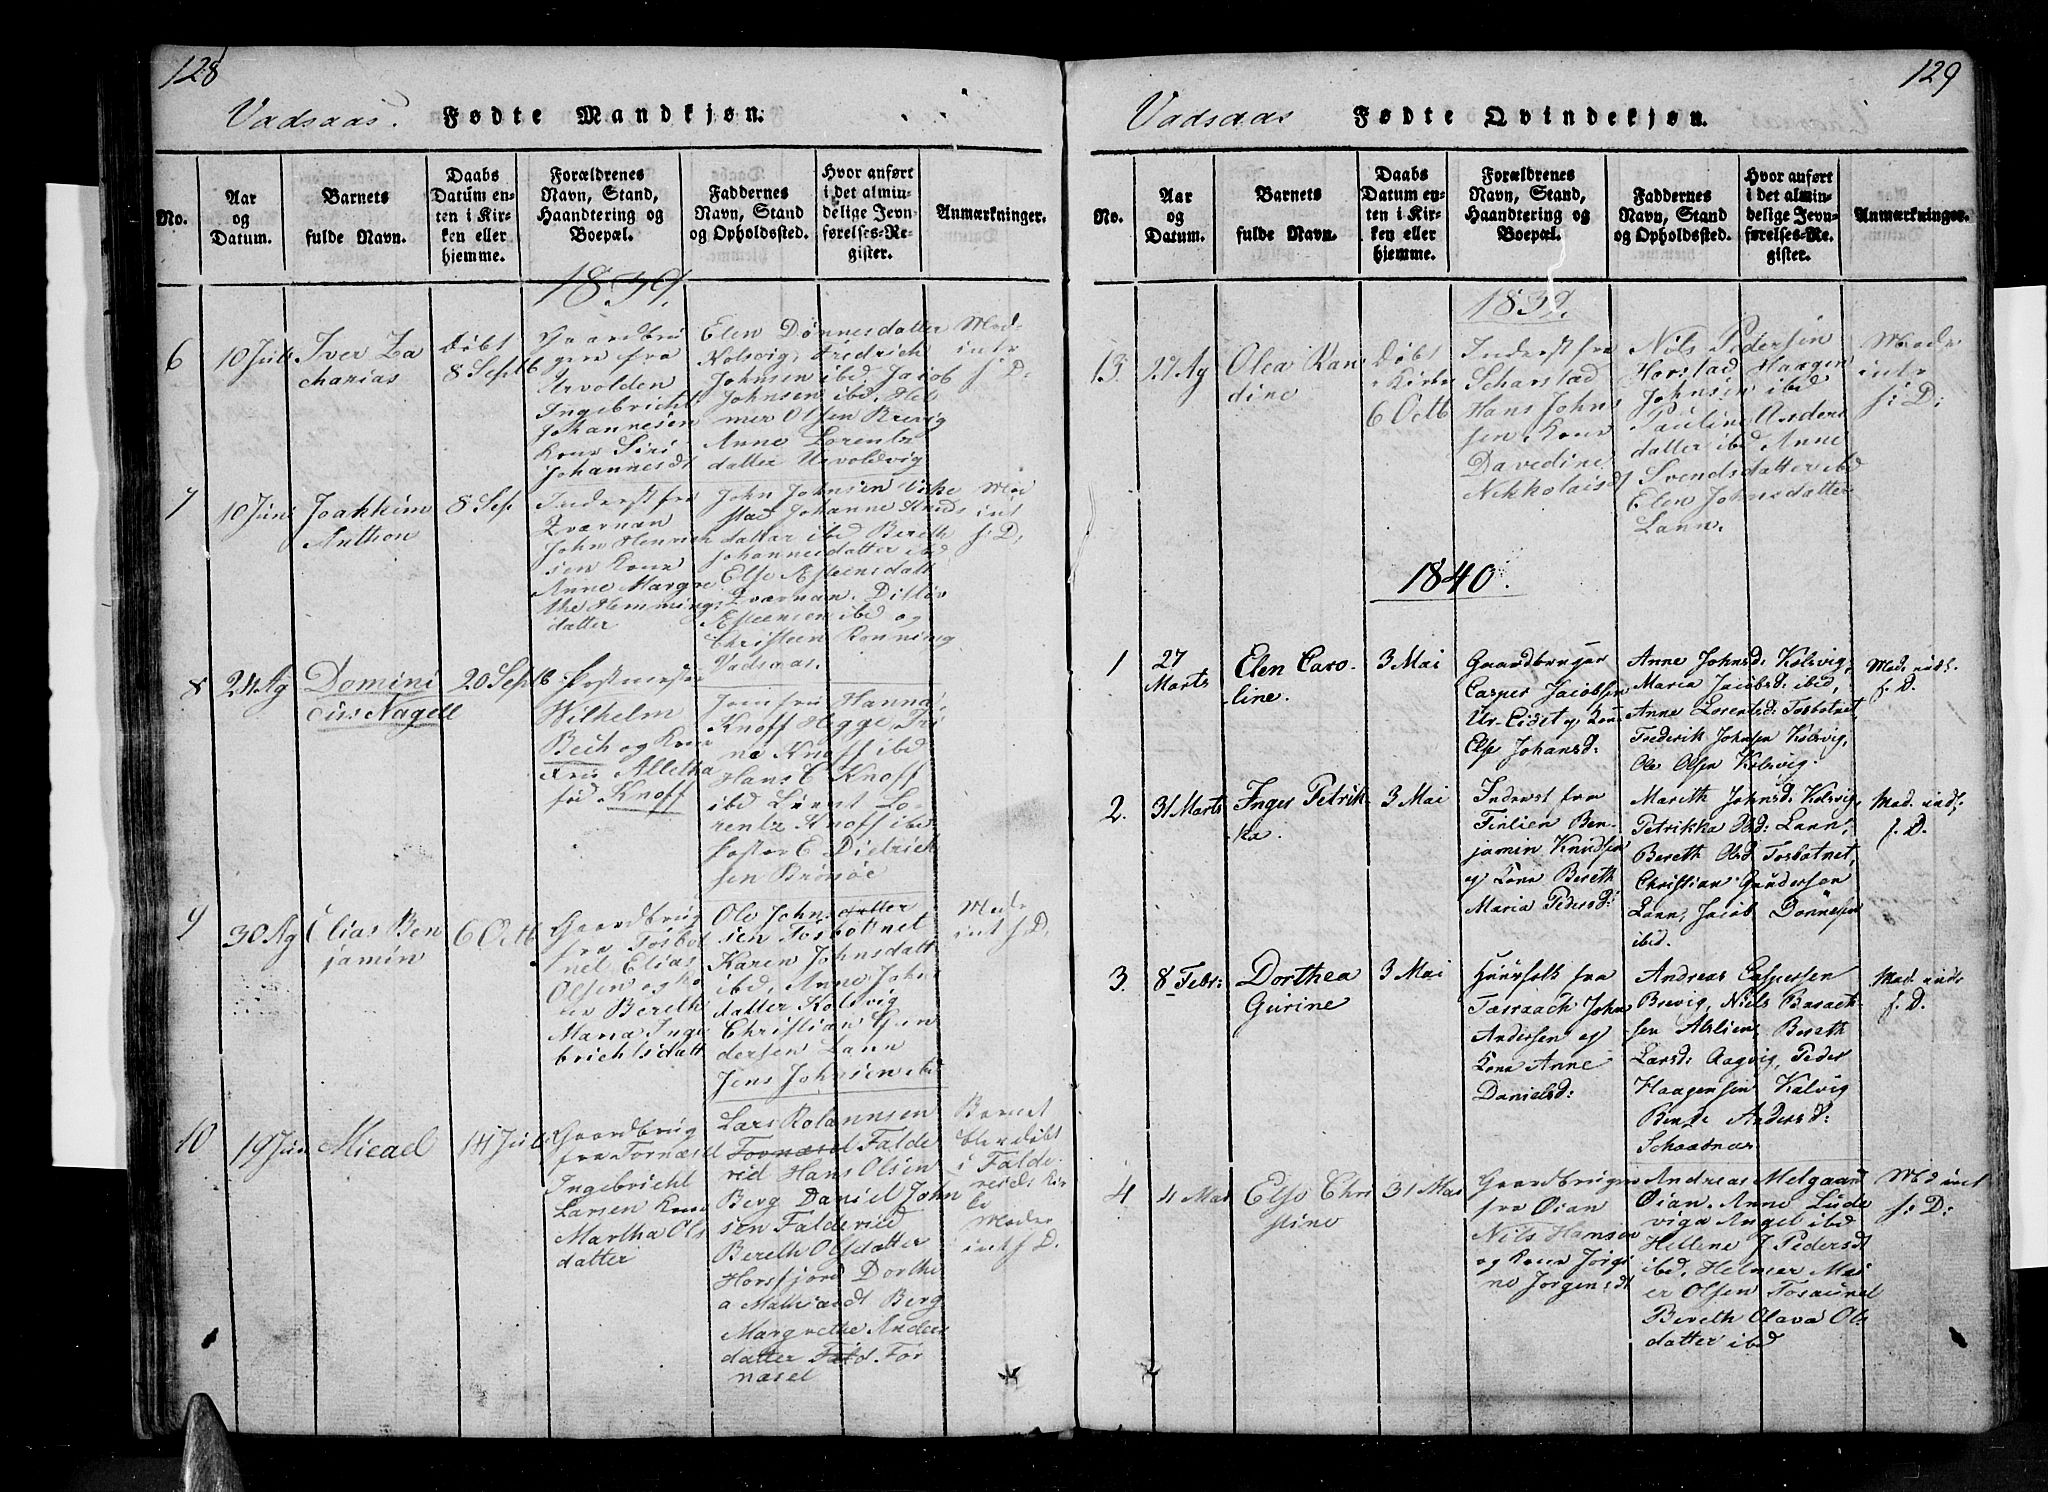 128
Vadsaas. Fødte Mandkjøn.
No.
Aar
og
Datum.
Barnets
fulde Navn.
Daabs
Datum en-
ten i Kir-
ken eller
hjemme.
Forældrenes
Navn, Stand,
Haandtering og
Boepæl.
Faddernes
Navn, Stand
og Opholdssted.
Hvor anført
i det almin-
delige Jevn-
førelses-Re-
gister.
Anmærkninger.
1839.
6
10 Juli
Iver Za
charias
Døbt
8 Septb
Gaardbru
gere fra
Urvolden
Ingebricht
Johannesen
Kone Siri
Johannesdt
Elen Dønnesdatter
Kolsvig, Fredrich
Johnsen ibd Jacob
Johnsen ibd. Hel
mer Olsen Brevig
Anne Lorentz
datter Urvoldvig
Mod-
intr
f. D:
7
10 Juni
Joakkim
Anthon
8 Sep
Inderst fra
Qværnan
John Henrich
sen Kone
Anne Margre
the Hemmings
datter
John Johnsen Viske
stad Johanne Knuds
datter ibd Bereth
Johannesdatter ibd
Else Asteensdatt
Qværnan. Ditløv
Asteensen ibd og
Christeen Rønning
Vadsaas.
Mod
int
f. D:
8
24 Ag
Domini
cus Nagell
20 Septb
Postmester
Wilhelm
Bech og Kone
Alletha
fød Knoff
Jomfru Hanna
Knoff Hegge Tri
ne Knoff ibd
Hans C Knoff
ibd Lieut Lo-
rentz Knoff ibd
Pastor C Didrich
sen Brønøe
9
30 Ag
Elias Ben
jamin
6 Octb
Gaardbrug
fra Tosbot
net Elias
Olsen og ko
ne Bereth
Maria Inge
brichtsdatt
Ole Johnsdatter
sen Tosbotnet
Karen Johnsdatt
ibd, Anne John
datter Kolsvig
Christian Gun
dersen Lann
Jens Johnsen ibd
Mode
int f. D.
10
19 Jun
Micael
14 Juli
Gaardbrug
fra Tornæsel
Ingebricht
Larsen Kone
Martha Ols
datter
Lars Rolannsen
Tornæsel Falde
reid Hans Olsen
Berg Daniel John
sen Faldereid
Bereth Olsdatter
Horsfjord Dorthe
a Mathiasdt Berg
Margrethe Anders
datter Fald. Tor
næsel
Barnet
blev døbt
i Falde
reids Kir
ke
Moder
int f D.
129
Vadsaas Fødte Qvindekjøn.
No.
Aar
og
Datum.
Barnets
fulde Navn.
Daabs
Datum en-
ten i Kir-
ken eller
hjemme.
Forældrenes
Navn, Stand,
Haandtering og
Boepæl.
Faddernes
Navn, Stand
og Opholdssted.
Hvor anført
i det almin-
delige Jevn-
førelses-Re-
gister.
Anmærkninger.
1839.
13.
27 Ag
Olea Kan
dine
Døbt
i Kirke
6 Octb
Inderst fra
Scharstad
Hans Johns
sen, Kone
Davedine
Nikkolaisd
Nils Pedersen
Horstad Haagen
Johnsen ibd
Pauline Anders
datter ibd Anne
Svendsdatter ibd
Elen Johnsdatter
Lann.
Mode
intr
f: D:
1840.
1
27
Marts
Elen Caro-
line.
3 Mai
Gaardbruger
Casper Jacobsen
Ur-Eidet og Kone
Else Johansd:
Anne Johnsd: Kolsvig,
Maria Jacobsd: ibid,
Anne Lorentsd: Tosbotnet,
Frederik Johnsen Kolsvig,
Ole Olsen Kolsvig.
Mod. inds.
f. D.
2.
31 Marts
Inger Petrik-
ka.
3 Mai
Inderst fra
Finlien Ben-
jamin Knudsen
og Kone Bereth
Maria Pedersd:
Mareth Johnsd: Kolsvig,
Petrikka Pd: Lann,
Bereth Olsd Tosbotnet,
Christian Gundersen
Lann, Jacob Dønnesen
ibid.
Mod. inds.
f. D.
3.
8 Febr:
Dorthea
Gurine
3 Mai
Huusfolk fra
Tasraach John
Andersen og
Kone Anne
Danielsd:
Andreas Caspersen
Brevig, Niels Baaach-
sen Aslien, Bereth
Larsd: Aagvig, Peder
Haagensen Kalvig
Bende Andersd:
Schaatnas
Mod. inds
f. D.
4
4 Mai
Else Chri
stine
31 Mai
Gaardbruger
fra Øian
Nils Hansen
og Kone Jørgi
ne Jørgensdt
Andreas Melgaard
Øian. Anne Lude
viga Angel ibd
Hellene J Pedersdt
ibd, Helmer Mei
er Olsen Tosaunet
Bereth Olava Ols
datter ibd
Mod int
f: D: